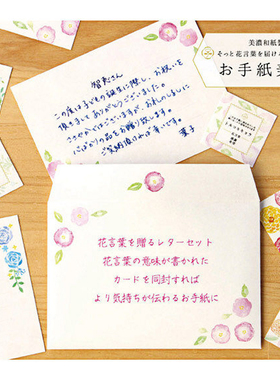 美濃和紙
そっと花言葉を届ける
お手紙
智恵さん
この度は子どもの誕生に際し、お祝いを
頂きましてありがとうございました。
ささやかではございますが、お礼のしるしに
心ばかりの品をお贈り致します。
ご笑納頂ければ幸いです。
葉子
花言葉を贈るレターセット
花言葉の意味が書かれた
カードを同封すれば
より気持ちが伝わるお手紙に